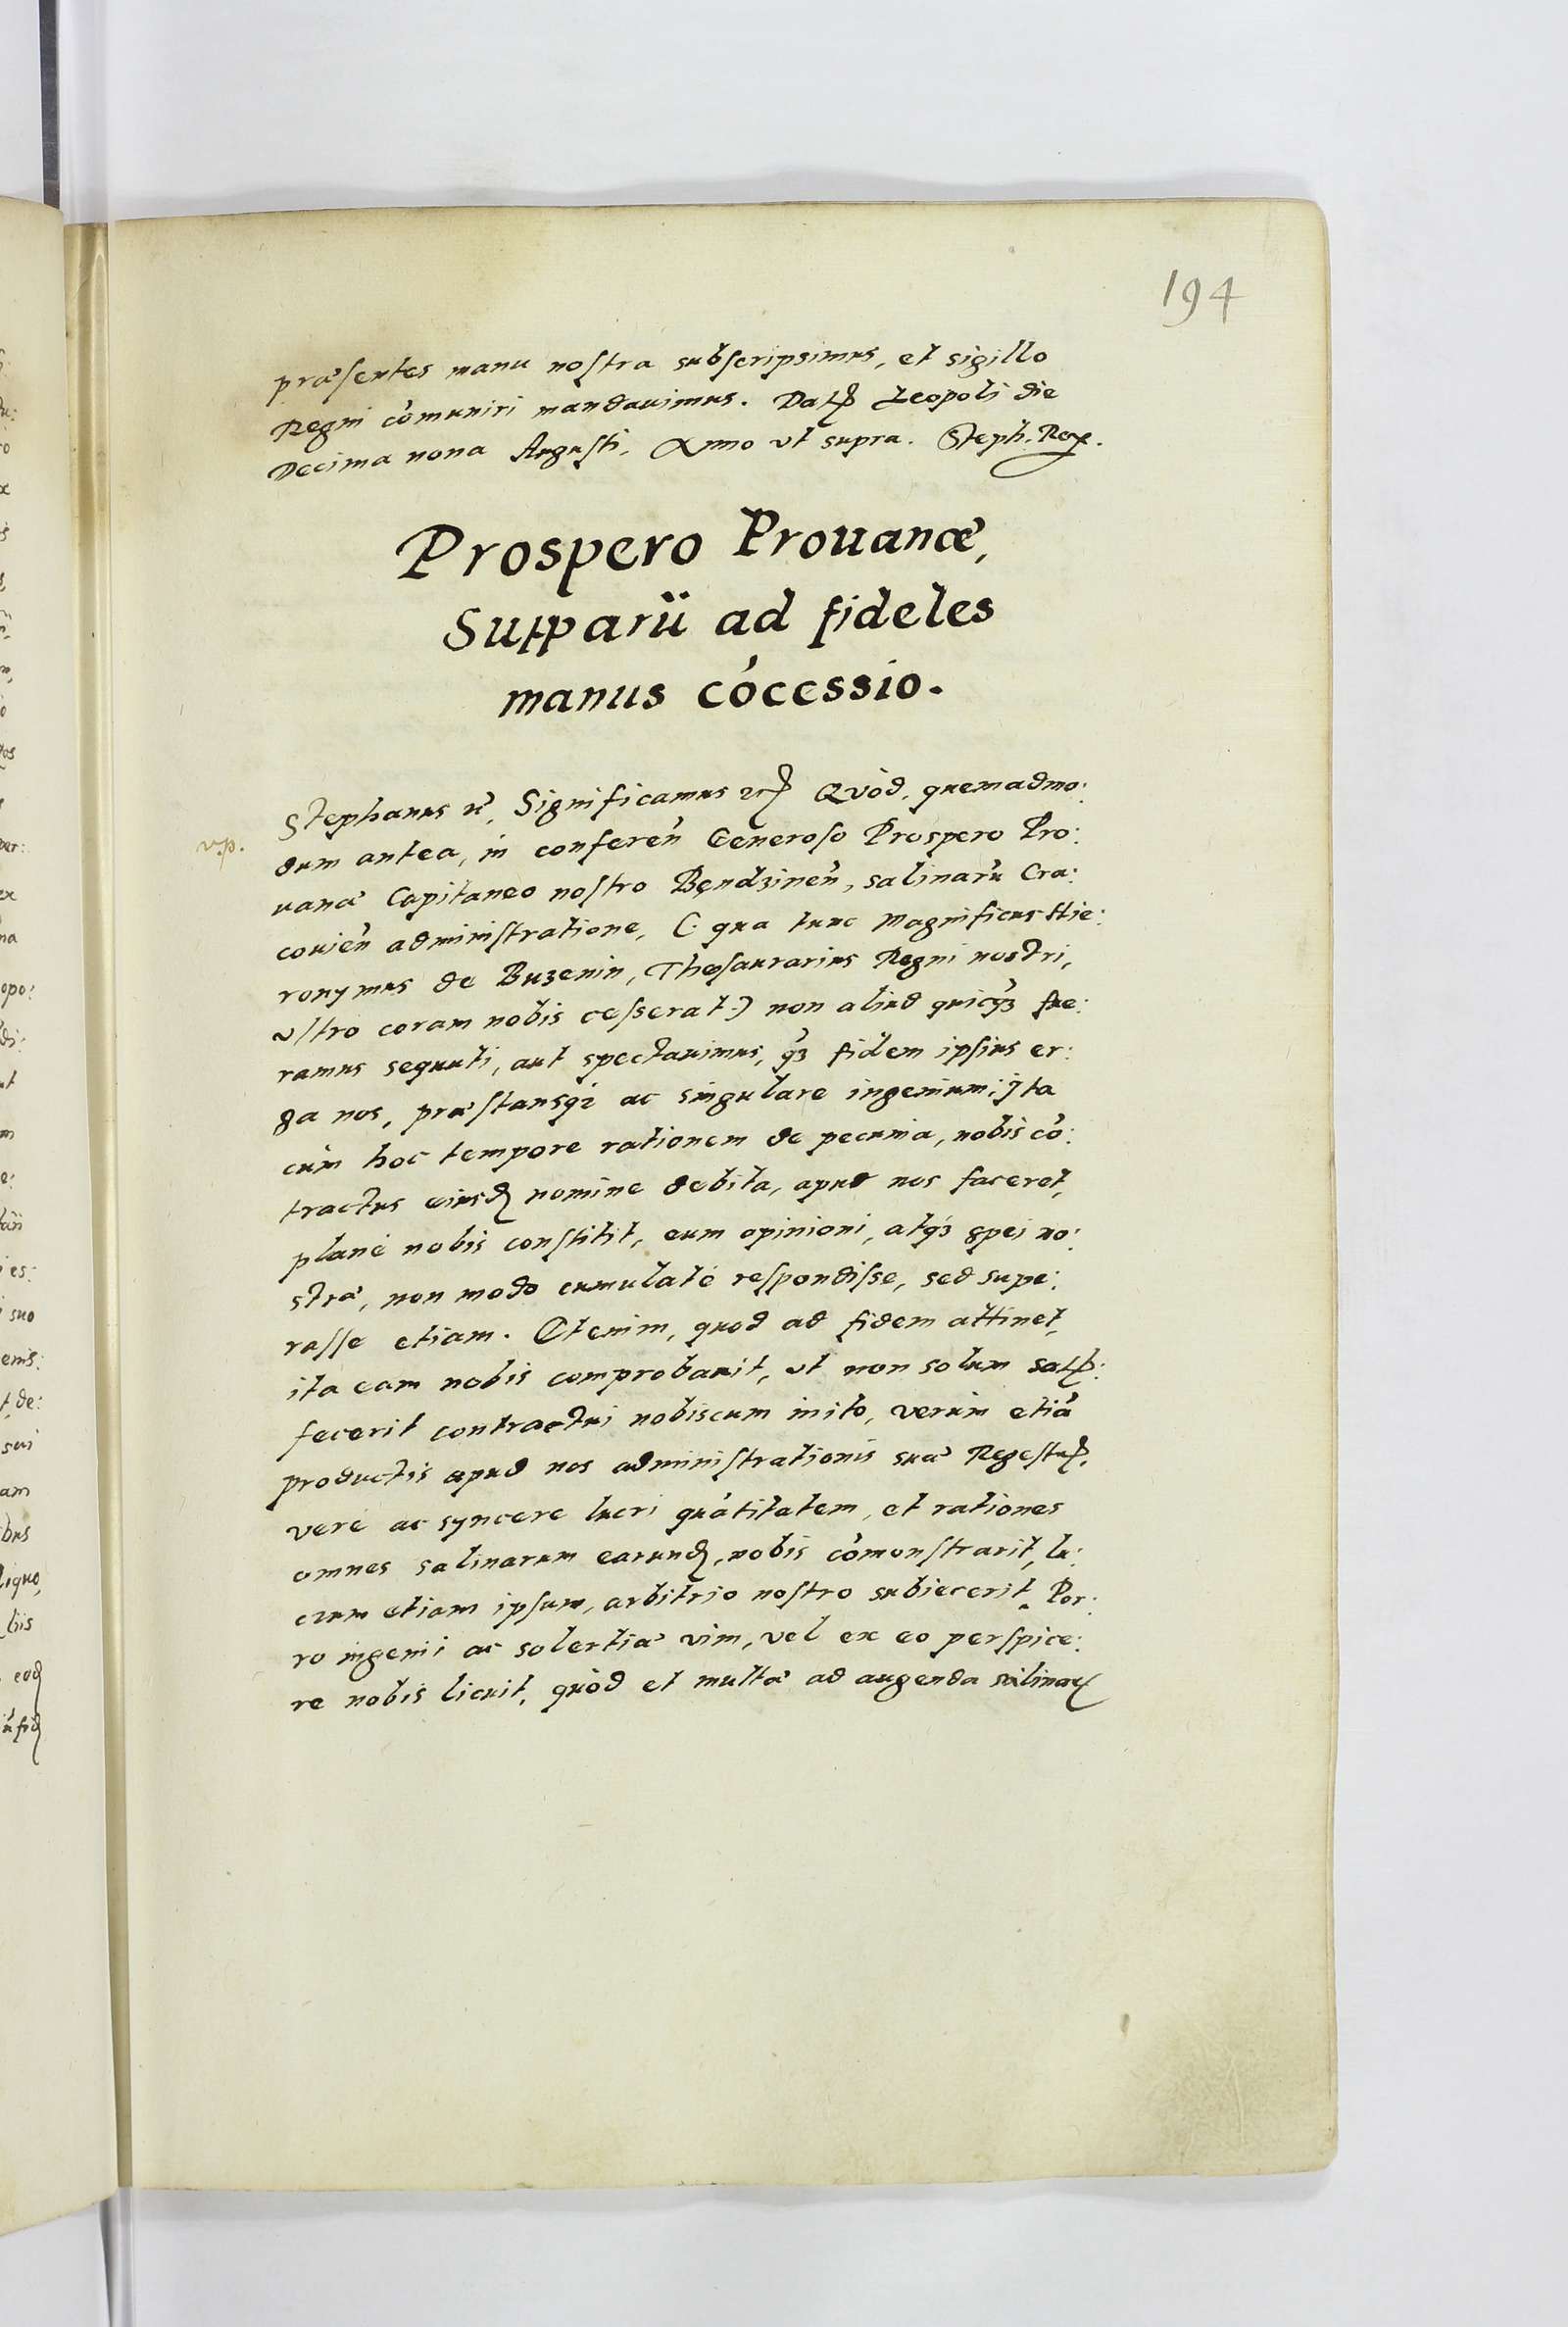 194
præsentes manu nostra subscripsimus, et sigillo
Regni cōmuniri mandauimus. Datꝭ Leopoli die
Decima nona Augusti, Anno vt supra. Steph. Rex.
Prospero Prouanæ,
Supparü ad fideles
manus cōcessio.
v.p.
Stephanus &c, Significamus &c Quòd, quemadmo:
dum antea, in conferen̄ Generoso Prospero Pro:
uanæ Capitaneo nostro Bendzinen̄, salinarū Cra:
couien̄ administratione, (: qua tunc Magnificus Hie:
ronymus de Buzenin, Thesaurarius Regni nostri,
vltro coram nobis cesserat :) non aliud quicꝗ̄ fue:
ramus sequuti, aut spectauimus, ꝗ̄ fidem ipsius er:
ga nos, præstansqȝ ac singulare ingenium: ita
cùm hoc tempore rationem de pecunia, nobis cō:
tractus eiusdꝭ nomine debita, apud nos faceret,
planè nobis constitit, eum opinioni, atqȝ spei no:
stræ, non modo cumulatè respondisse, sed supe:
rasse etiam. Etenim, quod ad fidem attinet,
ita eam nobis comprobauit, vt non solum satꝭ:
fecerit contractui nobiscum inito, verùm etiā
productis apud nos administrationis suæ Regestꝭ,
verè ac syncere lucri quātitatem, et rationes
omnes salinarum earundꝭ, nobis cōmonstrarit, lu:
crum etiam ipsum, arbitrio nostro subiecerit. Por:
ro ingenii ac solertiæ vim, vel ex eo perspice:
re nobis licuit, quòd et multa ad augenda salinaꝝ